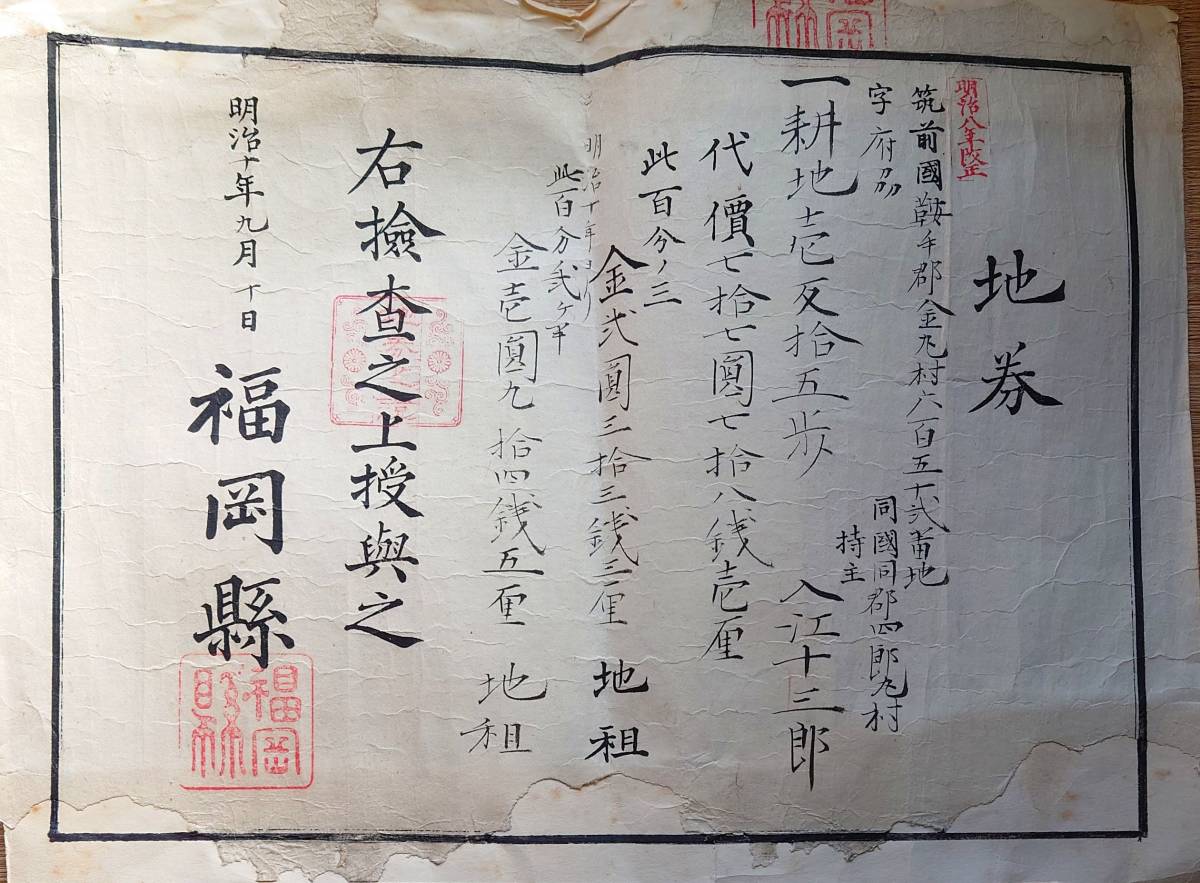 地券
明治八年改正
筑前國鞍手郡金丸村六百五十弐番地
字府刕
同國同郡四郎丸村
持主
一耕地壱反拾五歩
入江十三郎
代價七拾七圓七拾八銭壱厘
此百分ノ三
金弐圓三拾三銭三厘 地租
明治十年ヨリ
此百分ノ弐ケ半
金壱圓九拾四銭五厘 地租
右撿査之上授與之
明治十年九月十日
福岡縣